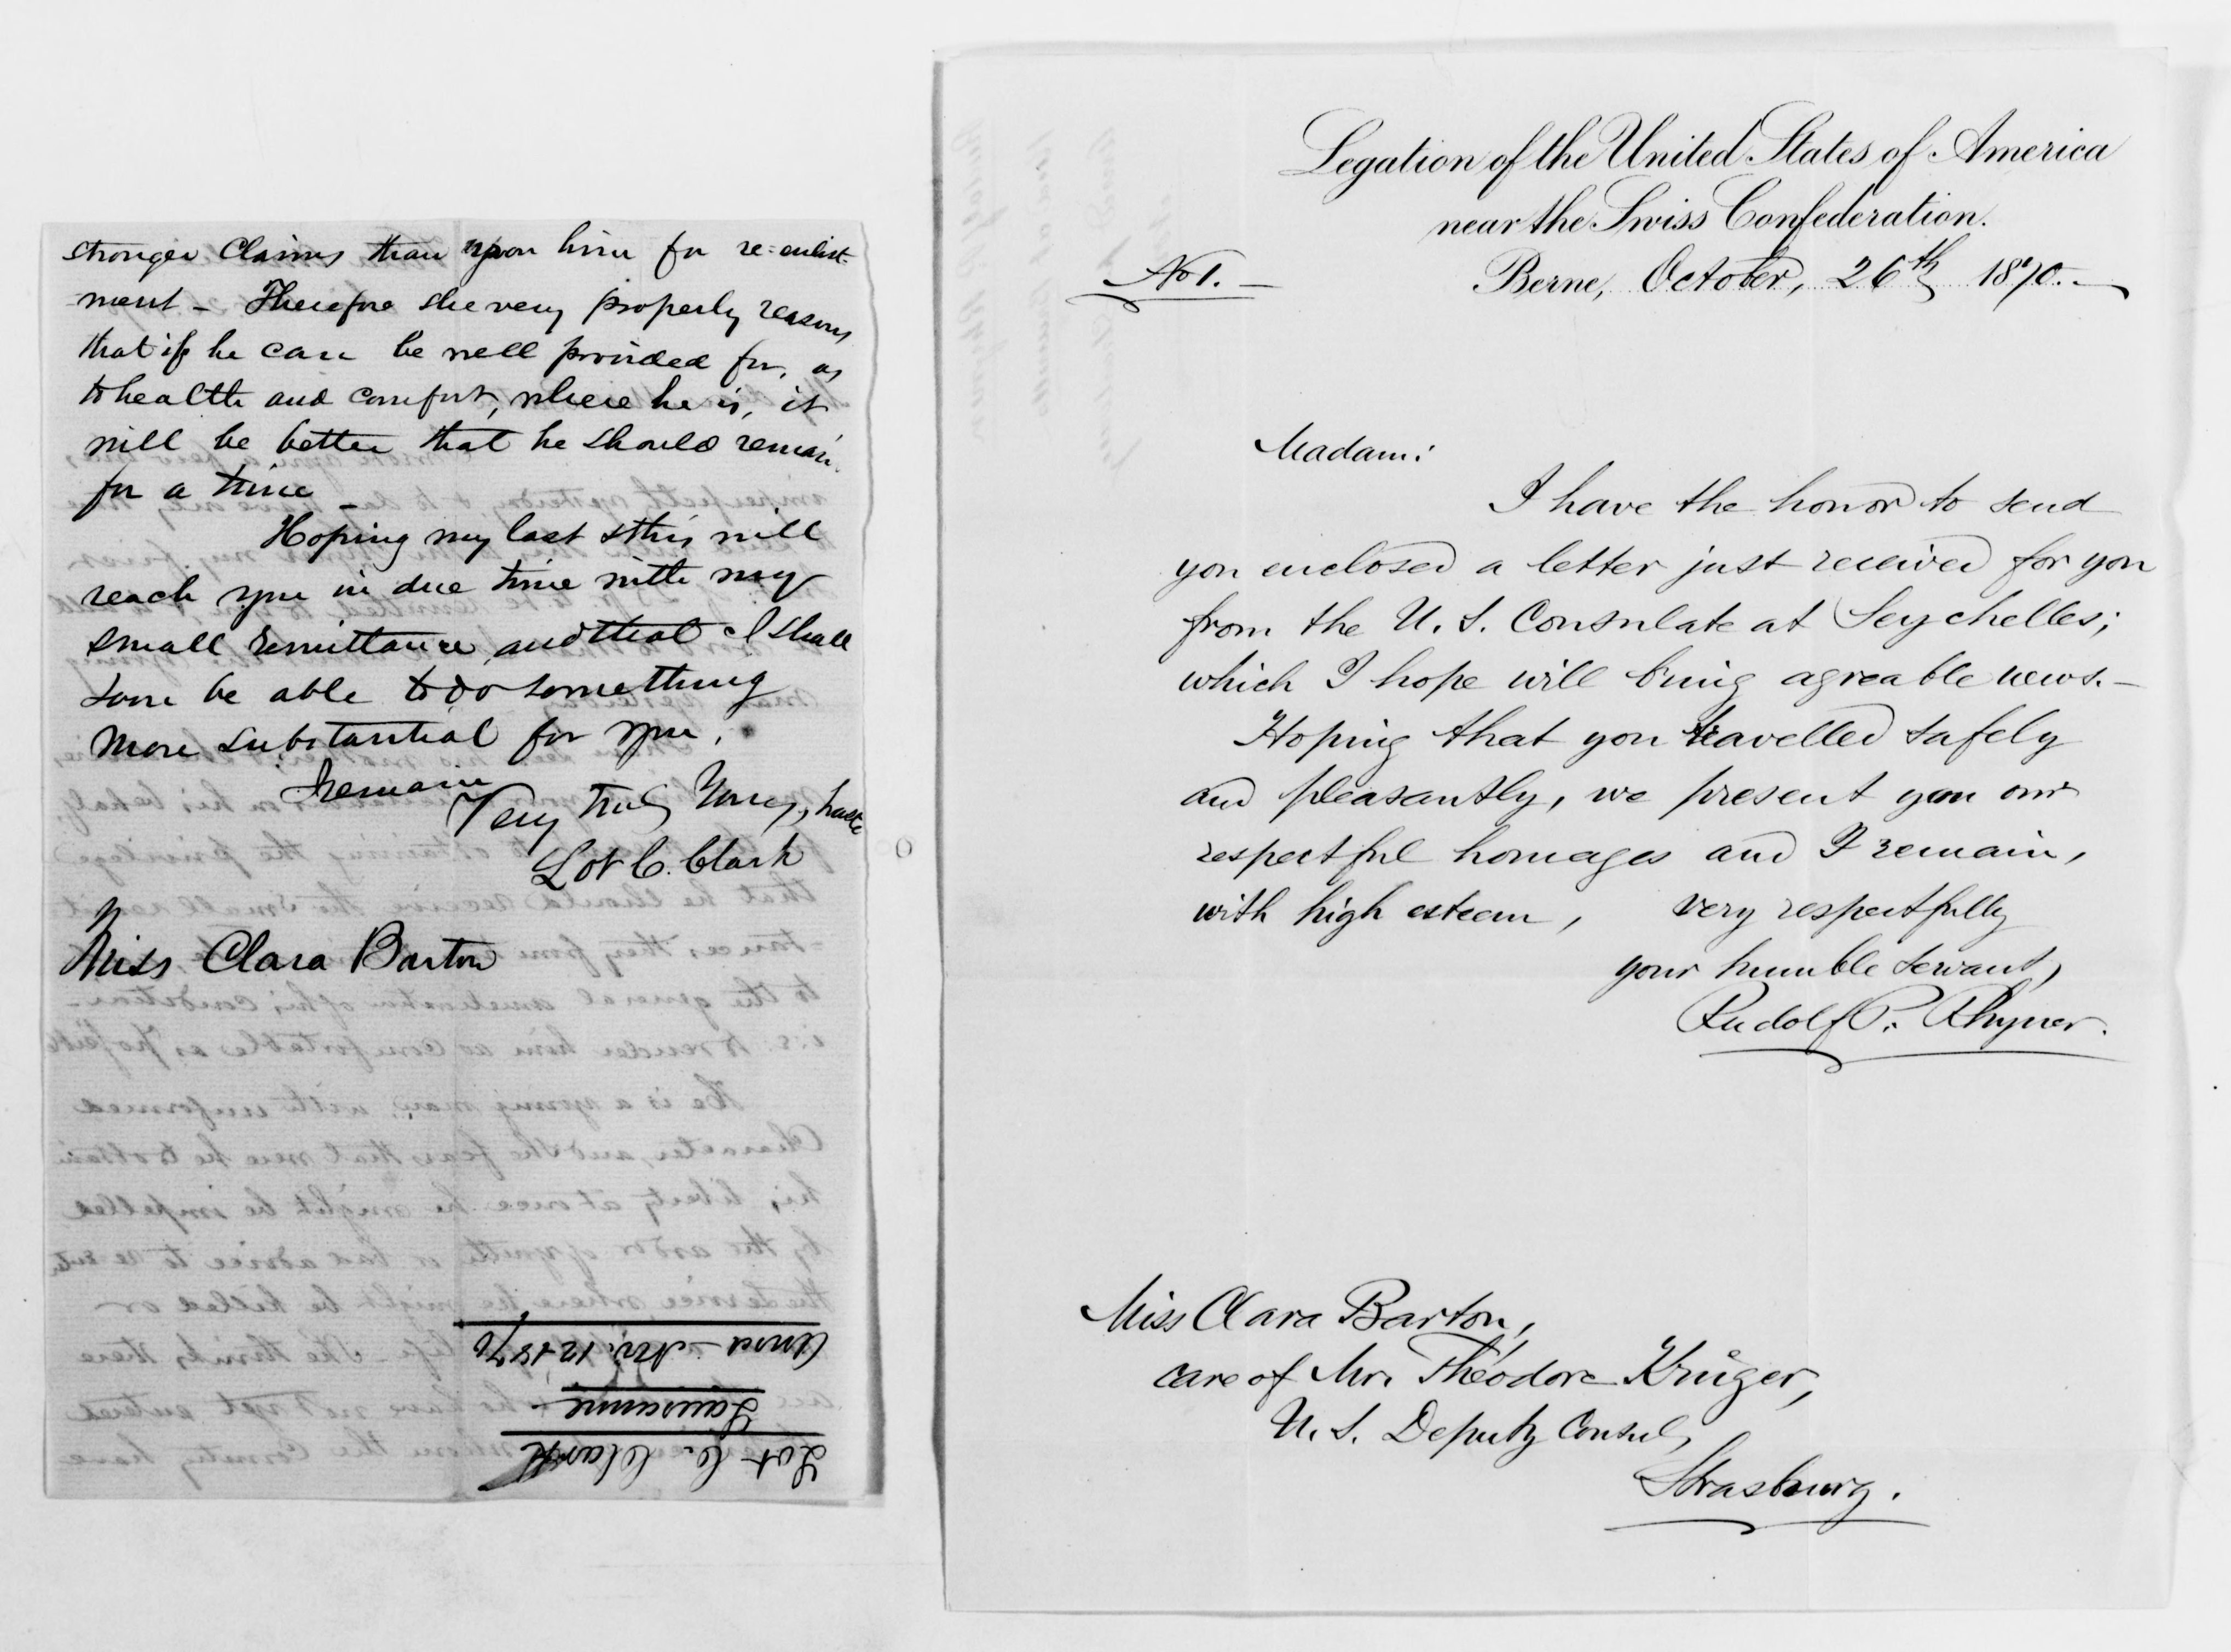 stronger Claims than upon him for re-enlist-
ment - Therefore she very properly reasons
that if he can be well provided for, as
to health and comfort, where he is, it
will be better that he should remain
for a time -
Hoping my last & this will
reach you in due time with my
small remittance, and that I shall
soon be able to do something
more substantial for you,
I remain
Very truly Yours, haste
Lot C. Clark
Miss Clara Barton
Lot C. Clark
Lausanne -
Ansd - Nov. 12 1870
Legation of the United States of America
near the Swiss Confederation.
No 1. -
Berne, October, 26th 1870. -
Madam:
I have the honor to send
you enclosed a letter just received for you
from the U. S. Consulate at Seychelles;
which I hope will bring agreable news. -
Hoping that you travelled safely
and pleasantly, we present you our
respectful homages and I remain,
with high esteem, very respectfully
your humble servant,
Rudolf P. Rhyner.
Miss Clara Barton,
care of Mr. Théodore Krüger,
U. S. Deputy Consul,
Strasburg.